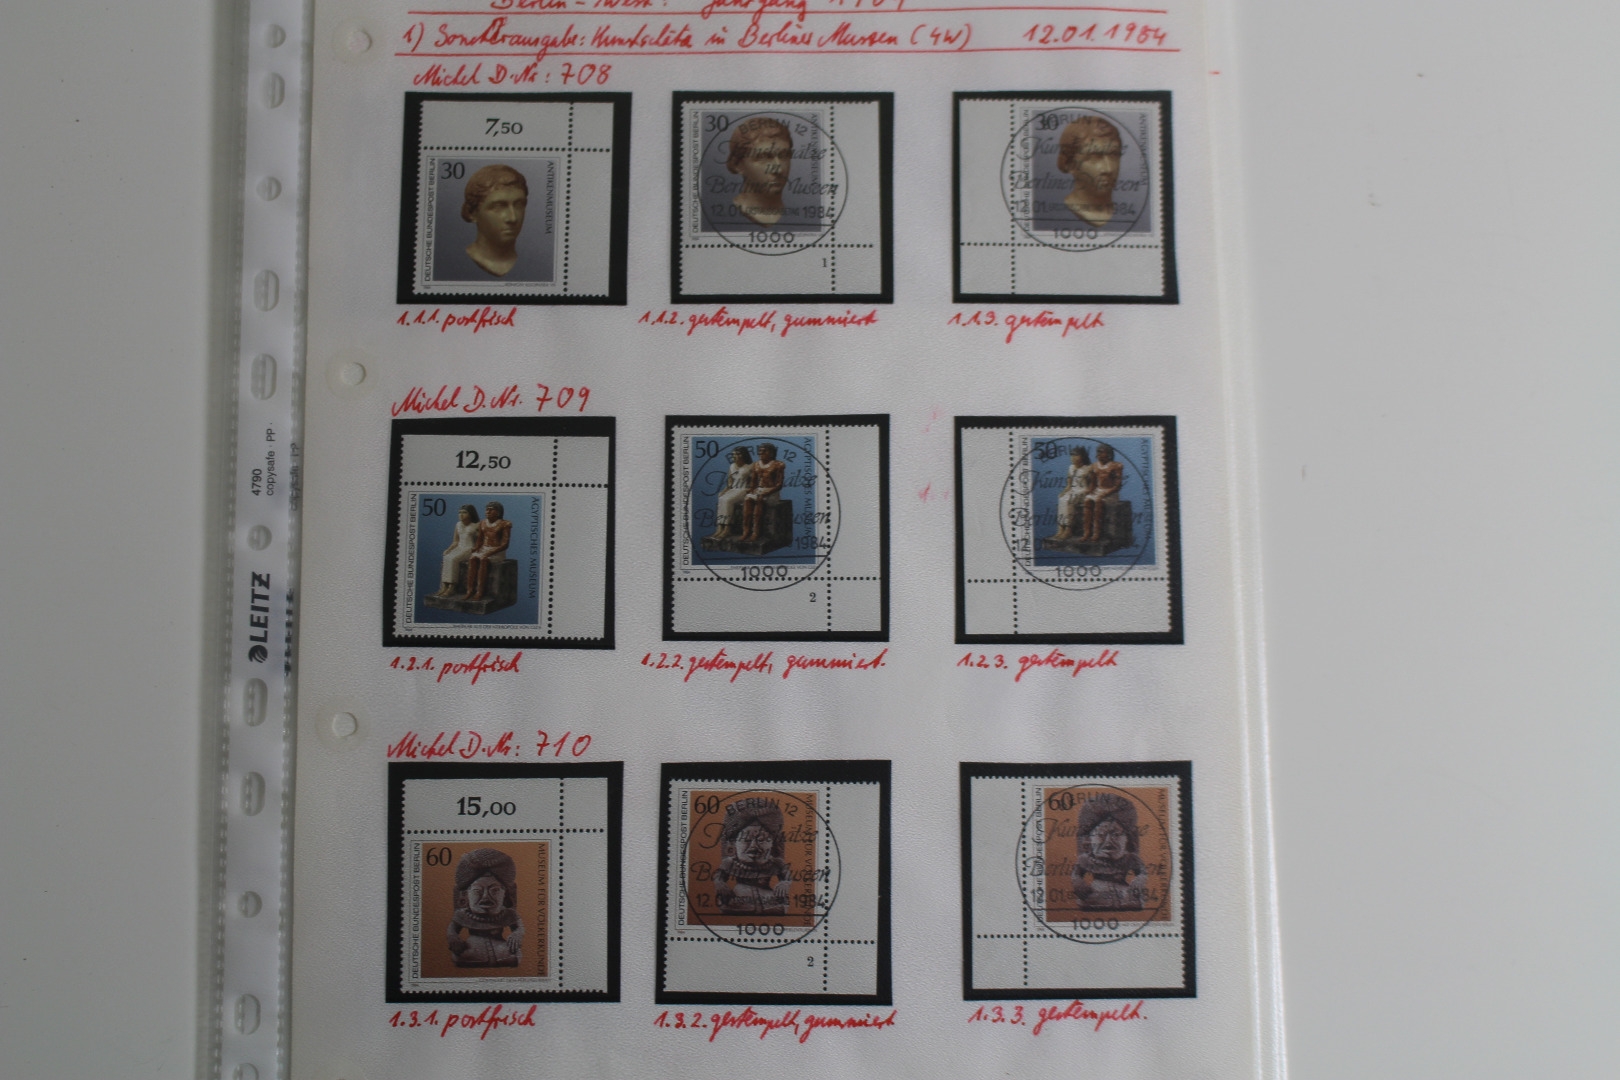 Berlin-West: Jahrgang 1984
1) Sonderausgabe: Kunstschätze in Berliner Museen (4W) 12.01.1984
Michel D.-Nr.: 708
7,50
30
DEUTSCHE BUNDESPOST BERLIN
ANTIKENMUSEUM
30
DEUTSCHE BUNDESPOST BERLIN
BERLIN 12
Kunstschätze
in
Berliner Museen
12.01.1984
1000
1
30
BERLIN 12
Kunstschätze
in
Berliner Museen
12.01.1984
1000
1.1.1. postfrisch
1.1.2. gestempelt, gummiert
1.1.3. gestempelt
Michel D.Nr. 709
12,50
50
DEUTSCHE BUNDESPOST BERLIN
ÄGYPTISCHES MUSEUM
50
DEUTSCHE BUNDESPOST BERLIN
ÄGYPTISCHES MUSEUM
BERLIN 12
Kunstschätze
Berliner Museen
12.01.1984
1000
2
50
BERLIN 12
Kunstschätze
in
Berliner Museen
12.01.1984
1000
1.2.1. postfrisch
1.2.2. gestempelt, gummiert.
1.2.3. gestempelt.
Michel D.-Nr.: 710
15,00
60
DEUTSCHE BUNDESPOST BERLIN
MUSEUM FÜR VÖLKERKUNDE
60
DEUTSCHE BUNDESPOST BERLIN
MUSEUM FÜR VÖLKERKUNDE
BERLIN 12
Kunstschätze
Berliner Museen
12.01.1984
1000
2
60
DEUTSCHE BUNDESPOST BERLIN
MUSEUM FÜR VÖLKERKUNDE
BERLIN 12
Kunstschätze
Berliner Museen
12.01.1984
1000
1.3.1. postfrisch
1.3.2. gestempelt, gummiert
1.3.3. gestempelt.
LEITZ
4790
copysafe · PP ·